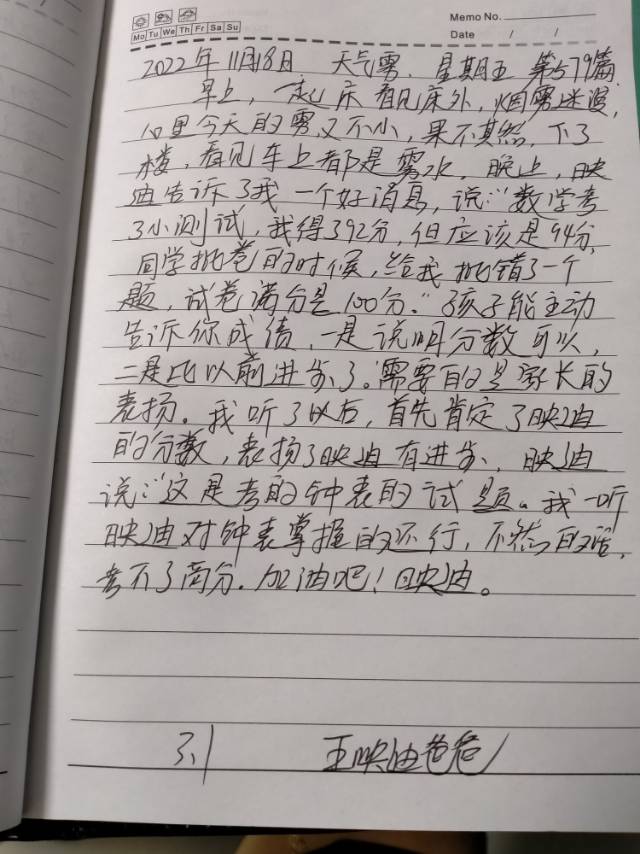 Memo No.
Mo Tu We Th Fr Sa Su
Date / /
2022年11月18日 天气雾. 星期五 第579篇
早上, 起床看见床外, 烟雾迷漫,
心里今天的雾又不小, 果不其然. 下了
楼, 看见车上都是雾水. 晚上, 映
迪告诉了我一个好消息, 说:"数学考
了小测试, 我得了92分, 但应该是94分,
同学批卷的时候, 给我批错了一个
题, 试卷满分是100分."孩子能主动
告诉你成绩, 一是说明分数可以,
二是比以前进步了。需要的是家长的
表扬. 我听了以后, 首先肯定了映迪
的分数, 表扬了映迪有进步、映迪
说:"这是考的钟表的试题。我一听
映迪对钟表掌握的还行, 不然的话,
考不了高分. 加油吧! 映迪。
3.1 王映迪爸爸